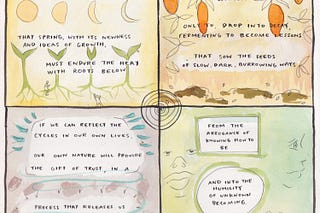 THAT SPRING, WITH ITS NEWNESS
AND IDEAS OF GROWTH,
MUST ENDURE THE HEAT
WITH ROOTS BELOW
ONLY TO, DROP INTO DECAY,
FERMENTING TO BECOME LESSONS
THAT SOW THE SEEDS
OF SLOW, DARK, BURROWING WAYS
IF WE CAN REFLECT THE
CYCLES IN OUR OWN LIVES,
OUR OWN NATURE WILL PROVIDE
THE GIFT OF TRUST, IN A
PROCESS THAT RELEASES US
FROM THE
ARROGANCE OF
KNOWING HOW TO
BE
AND INTO THE
HUMILITY
OF UNKNOWN
BECOMING